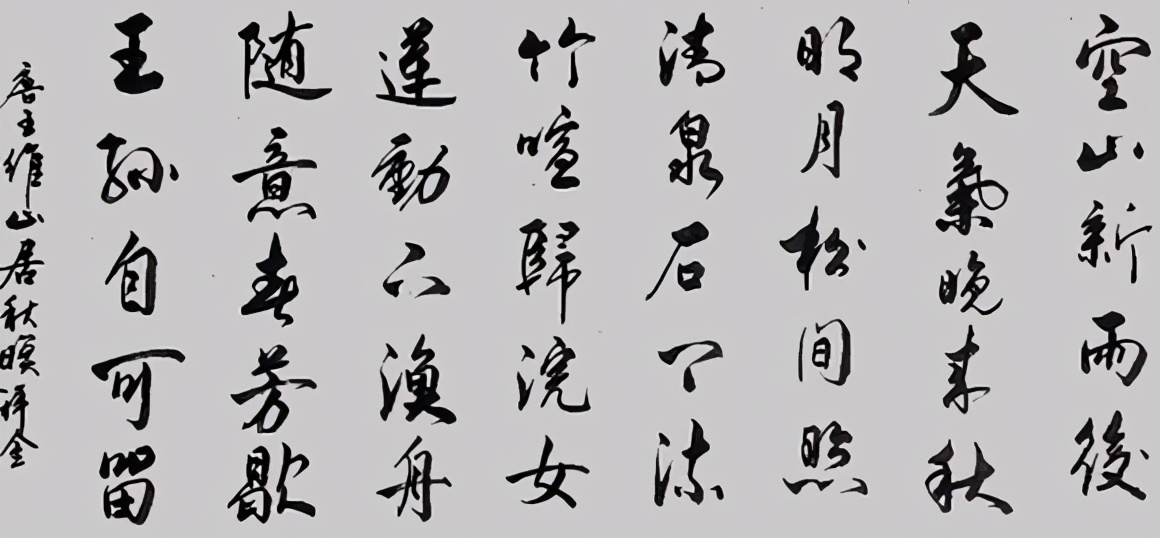 空山新雨後
天氣晚来秋
明月松間照
清泉石下流
竹喧歸浣女
蓮動下漁舟
随意春芳歇
王孫自可留
唐王維山居秋暝 祥金